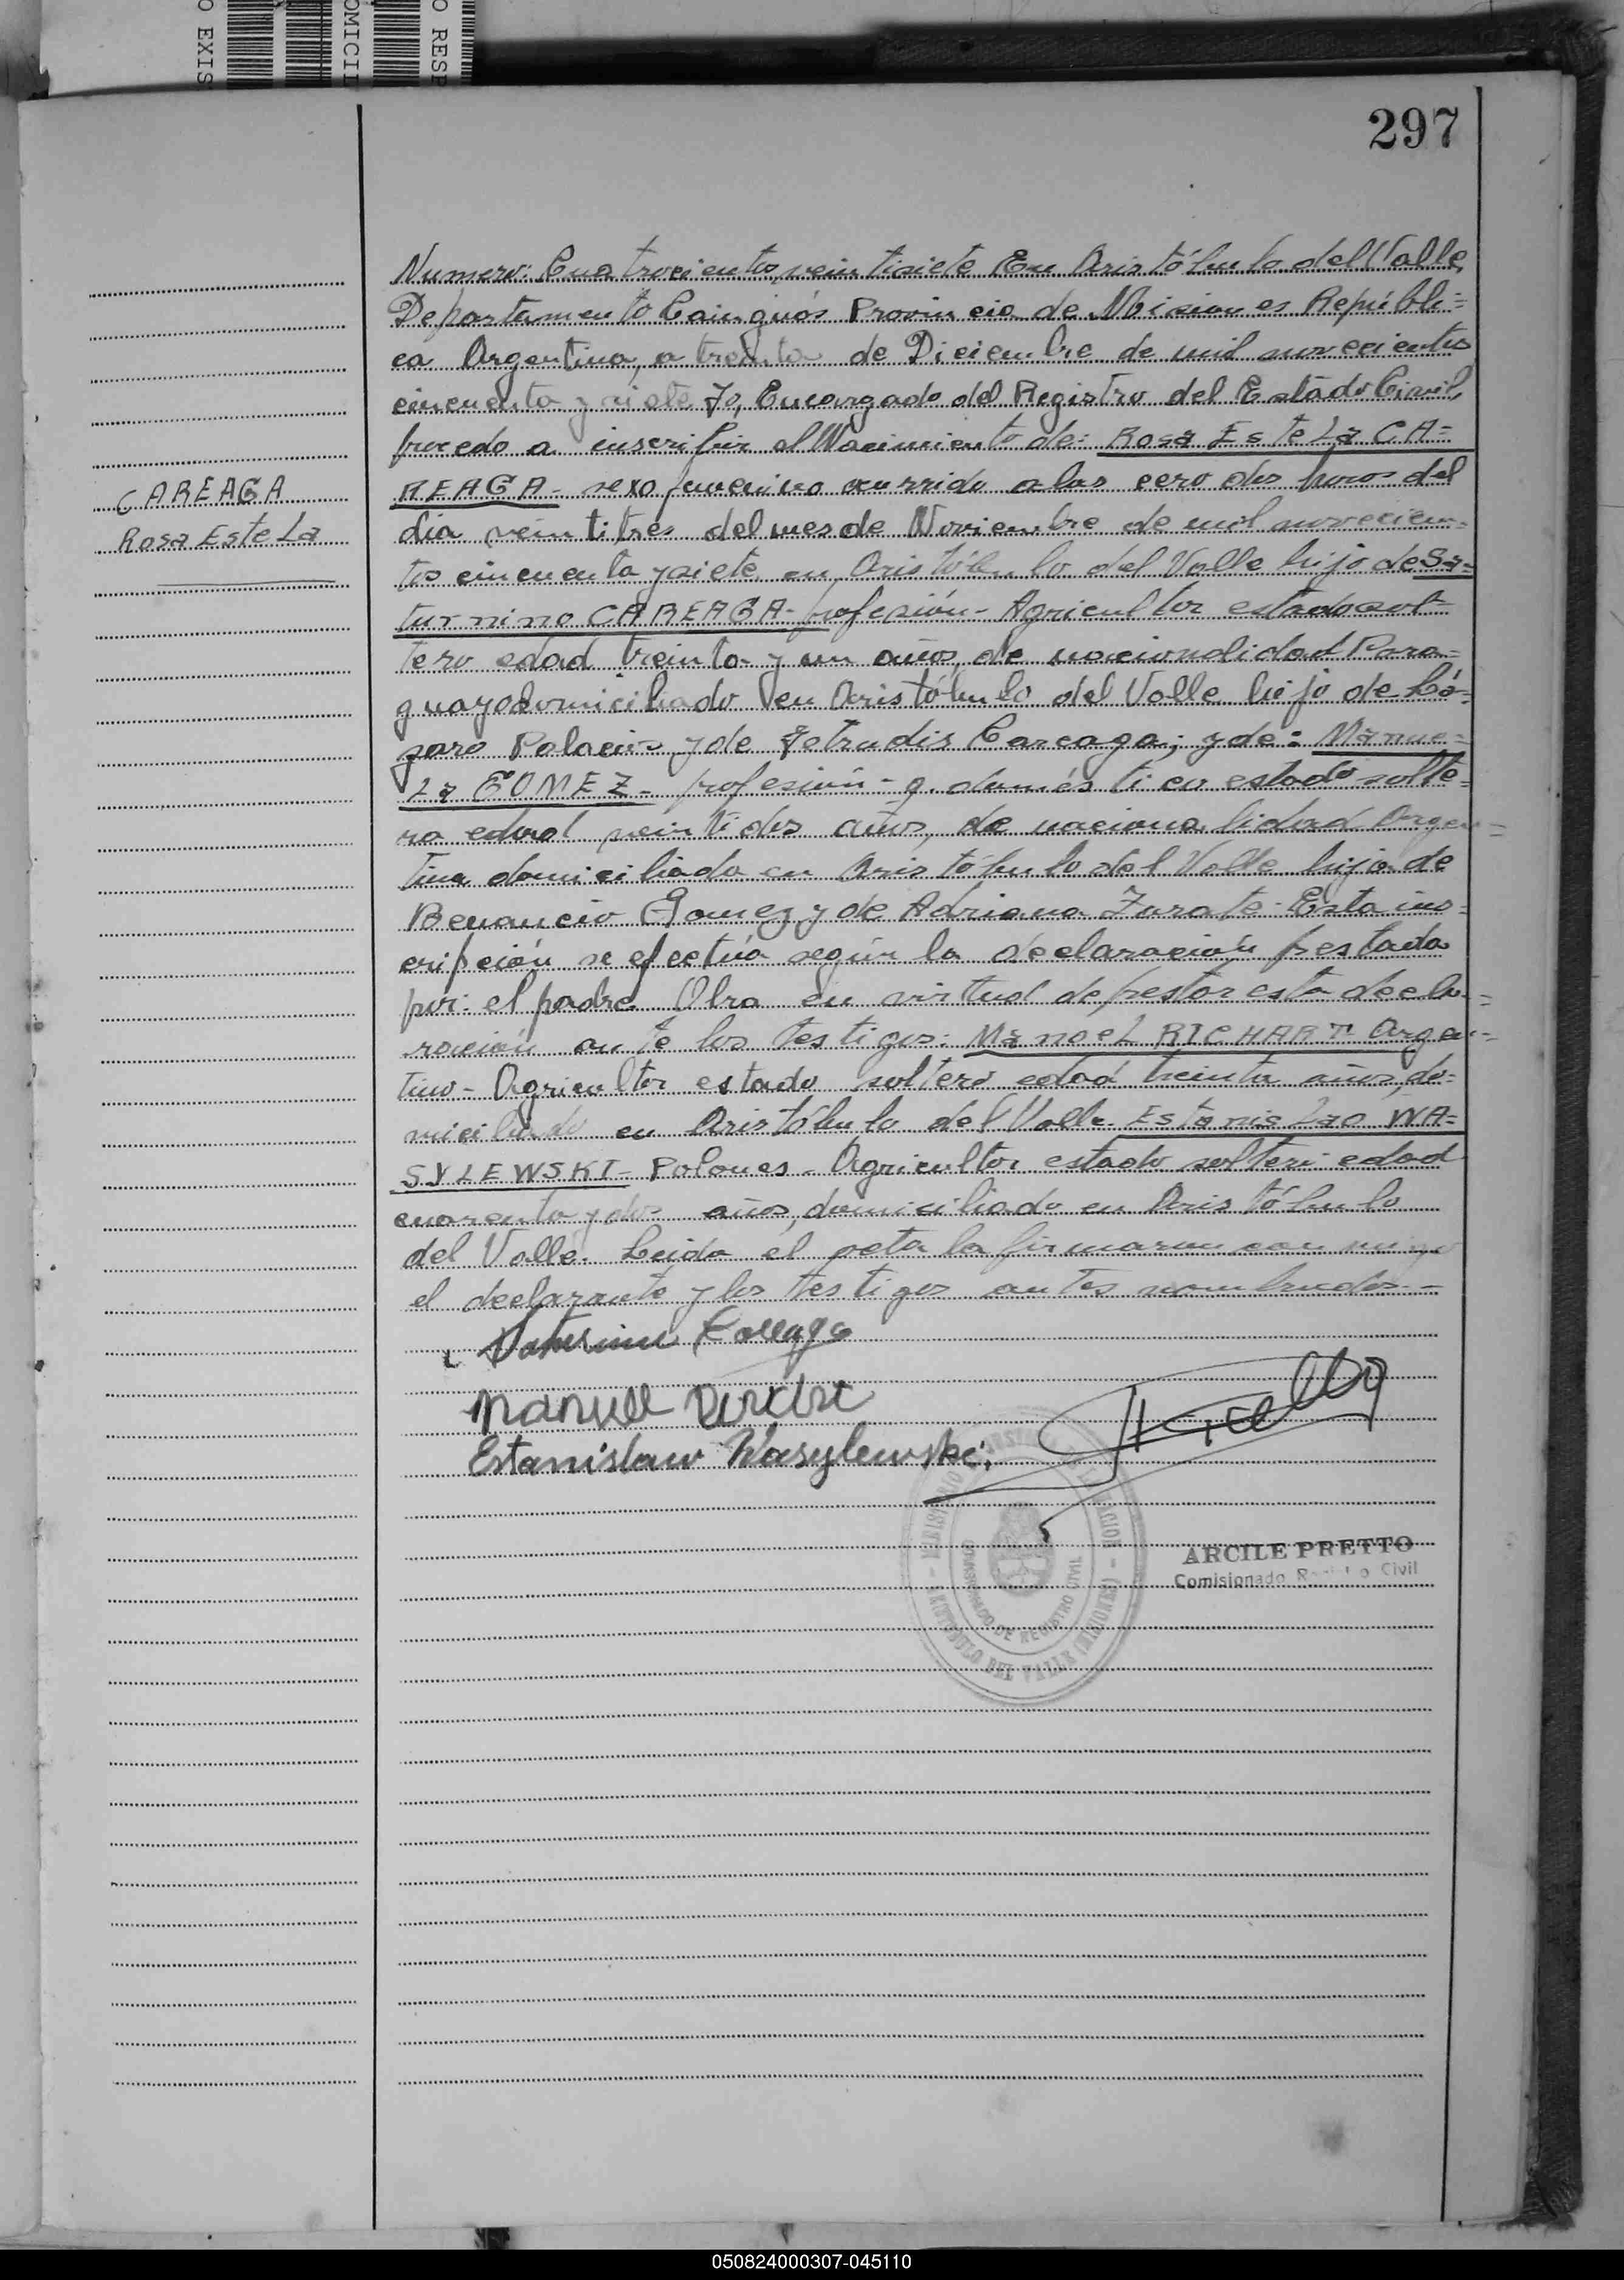 O EXIS
OMICIL
O RESP
297
CAREAGA
Rosa Estela
Numero: Cuatrocientos veintisiete En Aristóbulo del Valle,
Departamento Cainguás Provincia de Misiones Repúbli=
ca Argentina, a treinta de Diciembre de mil novecientos
cincuenta y siete Yo, Encargado del Registro del Estado Civil,
procedo a inscribir el Nacimiento de: Rosa Estela CA=
REAGA- sexo femenino ocurrido a las cero dos horas del
día veintitrés del mes de Noviembre de mil novecien=
tos cincuenta y siete en Aristóbulo del Valle hijo de Sa=
turnino CAREAGA- profesión- Agricultor estado sol=
tero edad treinta y un años, de nacionalidad Para=
guayo domiciliado en Aristóbulo del Valle hijo de Lá=
zaro Palacios y de Jetrudis Careaga; y de: Manue=
La GOMEZ- profesión- q. doméstico estado solte=
ra edad veintidos años, de nacionalidad Argen=
tina domiciliada en Aristóbulo del Valle hija de
Benancio Gomez y de Adriana Zarate- Esta ins=
cripción se efectúa según la declaración prestada
por: el padre Obra en virtud de prestar esta decla=
ración ante los testigos: Manoel RICHART Argen=
tino- Agricultor estado soltero edad treinta años, do=
miciliado en Aristóbulo del Valle. Estanislao WA=
SYLEWSKI- Polones- Agricultor estado soltero edad
cuarenta y dos años, domiciliado en Aristóbulo
del Valle. Leida el acta la firmaron con migo
el declarante y los testigos antes nombrados-
Saturnino Careaga
Manuel
Estanislaw Wasylewski
COMISIONADO DE REGISTRO CIVIL
ARISTOBULO DEL VALLE (MISIONES)
ARCILE PRETTO
Comisionado Registro Civil
050824000307-045110